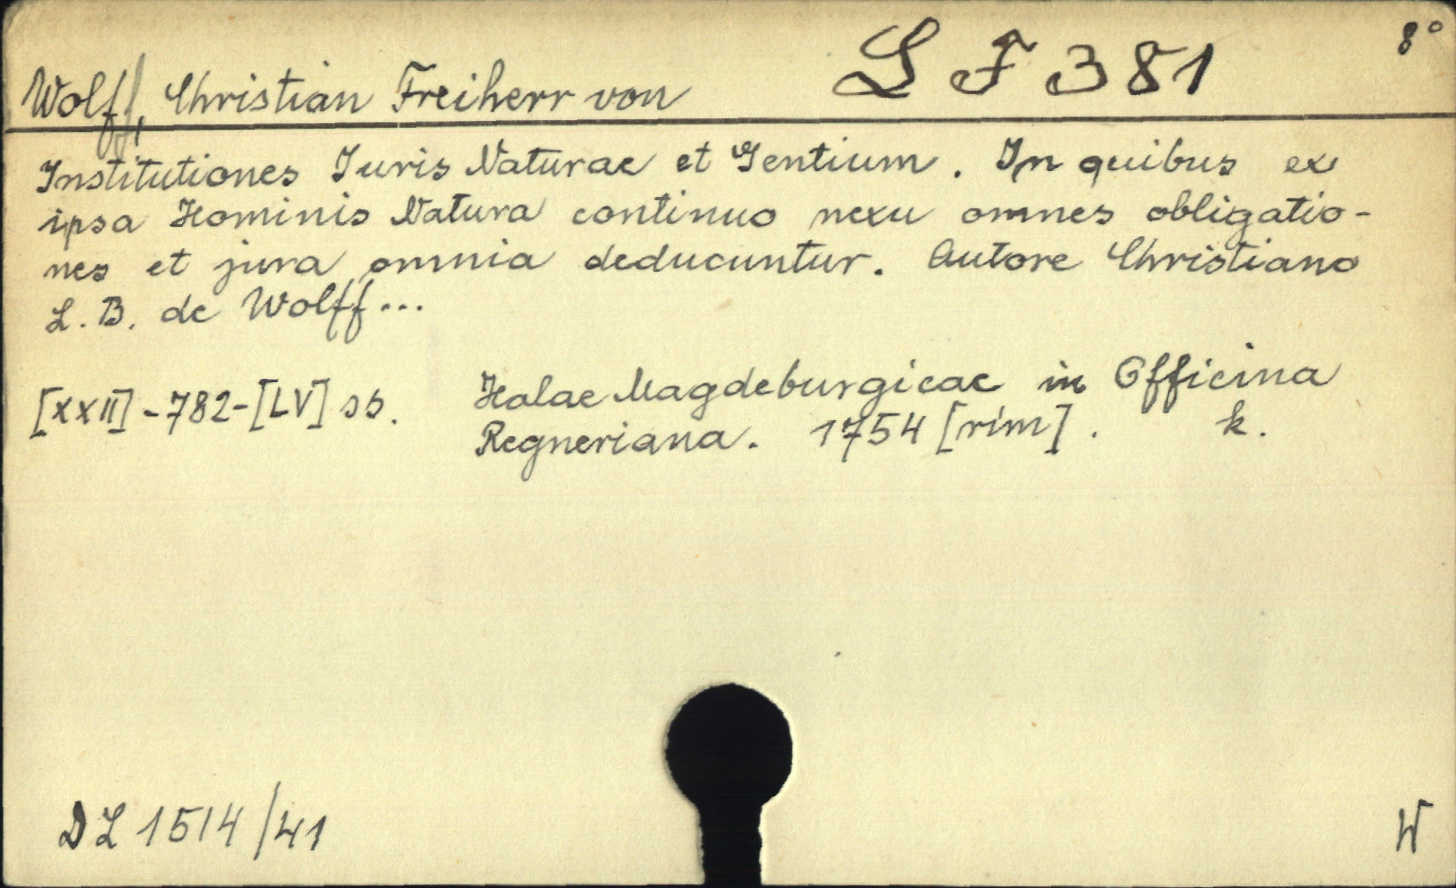 8°
Wolff, Christian Freiherr von L F 381
Institutiones Juris Naturae et Gentium. In quibus ex
ipsa Hominis Natura continuo nexu omnes obligatio-
nes et jura omnia deducuntur. Autore Christiano
L. B. de Wolff...
[XXII]-782-[LV] ss. Halae Magdeburgicae in Officina
Regneriana. 1754 [rim]. k.
DL 1514/41 W